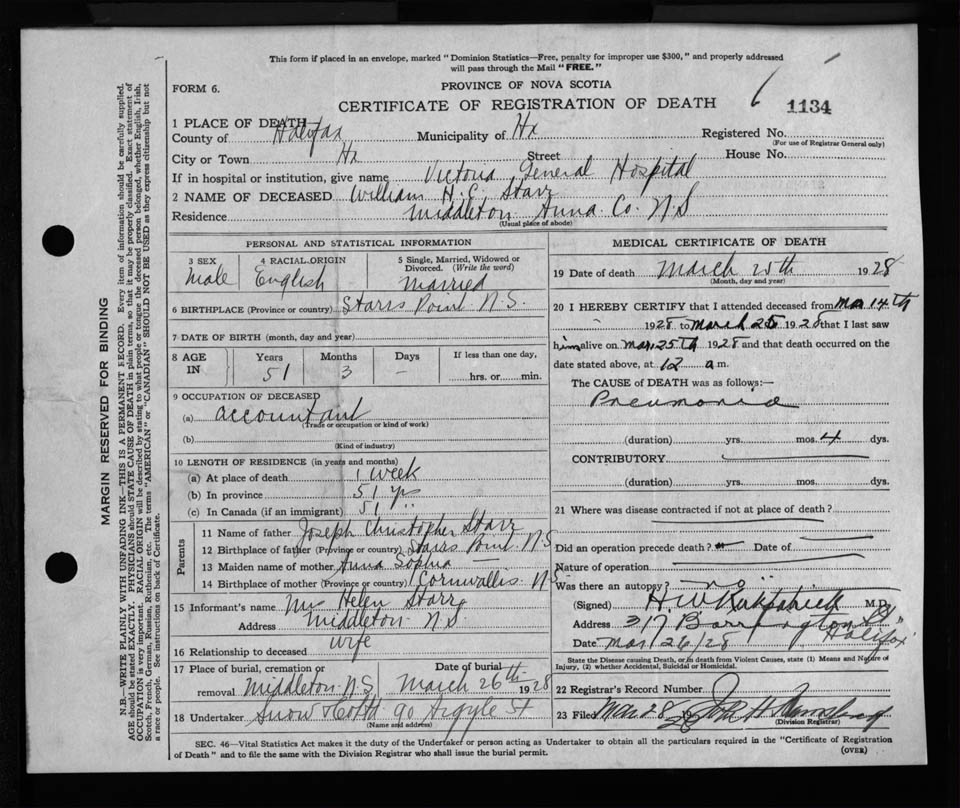 This form if placed in an envelope, marked "Dominion Statistics—Free, penalty for improper use $300," and properly addressed
will pass through the Mail "FREE."
FORM 6.
PROVINCE OF NOVA SCOTIA
CERTIFICATE OF REGISTRATION OF DEATH
1134
1 PLACE OF DEATH
County of Halifax Municipality of Hx Registered No.
(For use of Registrar General only)
City or Town Hx Street House No.
If in hospital or institution, give name Victoria General Hospital
2 NAME OF DECEASED William H. C. Starr
Residence Middleton Anna Co. N.S
(Usual place of abode)
PERSONAL AND STATISTICAL INFORMATION
3 SEX
Male
4 RACIAL ORIGIN
English
5 Single, Married, Widowed or
Divorced. (Write the word)
Married
6 BIRTHPLACE (Province or country) Starrs Point N.S.
7 DATE OF BIRTH (month, day and year)
8 AGE IN
Years Months Days
51 3 –
If less than one day,
hrs. or min.
9 OCCUPATION OF DECEASED
(a) accountant
(Trade or occupation or kind of work)
(b)
(Kind of industry)
10 LENGTH OF RESIDENCE (in years and months)
(a) At place of death 1 week
(b) In province 51 yrs
(c) In Canada (if an immigrant) 51 "
Parents
11 Name of father Joseph Christopher Starr
12 Birthplace of father (Province or country) Starrs Point N.S
13 Maiden name of mother Anna Sophia —
14 Birthplace of mother (Province or country) Cornwallis N.S
15 Informant's name Mrs Helen Starr
Address Middleton N.S.
16 Relationship to deceased wife
17 Place of burial, cremation or
removal Middleton N.S.
Date of burial
March 26th 1928
18 Undertaker Snow & Co Ltd 90 Argyle St
(Name and address)
MEDICAL CERTIFICATE OF DEATH
19 Date of death March 25th 1928
(Month, day and year)
20 I HEREBY CERTIFY that I attended deceased from Mar 14th
1928 to March 25 1928 that I last saw
him alive on Mar. 25th 1928 and that death occurred on the
date stated above, at 12 a m.
The CAUSE of DEATH was as follows:—
Pneumonia
(duration) yrs. mos. 4 dys.
CONTRIBUTORY
(duration) yrs. mos. dys.
21 Where was disease contracted if not at place of death?
Did an operation precede death? Date of
Nature of operation
Was there an autopsy? no
(Signed) H. W Kirkpatrick M.D.
Address 317 Barrington St
Halifax
Date Mar 26/28
State the Disease causing Death, or in death from Violent Causes, state (1) Means and Nature of
Injury, (2) whether Accidental, Suicidal or Homicidal.
22 Registrar's Record Number
23 Filed Mar 28 John H
(Division Registrar)
SEC. 46—Vital Statistics Act makes it the duty of the Undertaker or person acting as Undertaker to obtain all the particulars required in the "Certificate of Registration
of Death" and to file the same with the Division Registrar who shall issue the burial permit.
(OVER)
MARGIN RESERVED FOR BINDING
N.B.—WRITE PLAINLY WITH UNFADING INK—THIS IS A PERMANENT RECORD. Every item of information should be carefully supplied.
AGE should be stated EXACTLY. PHYSICIANS should STATE CAUSE OF DEATH in plain terms, so that it may be properly classified. Exact statement of
OCCUPATION is very important. RACIAL ORIGIN will be described by stating to what people or tongue the deceased person belonged, whether English, Irish,
Scotch, French, German, Russian, Ruthenian, etc. The terms "AMERICAN" or "CANADIAN" SHOULD NOT BE USED as they express citizenship but not
a race or people. See instructions on back of Certificate.